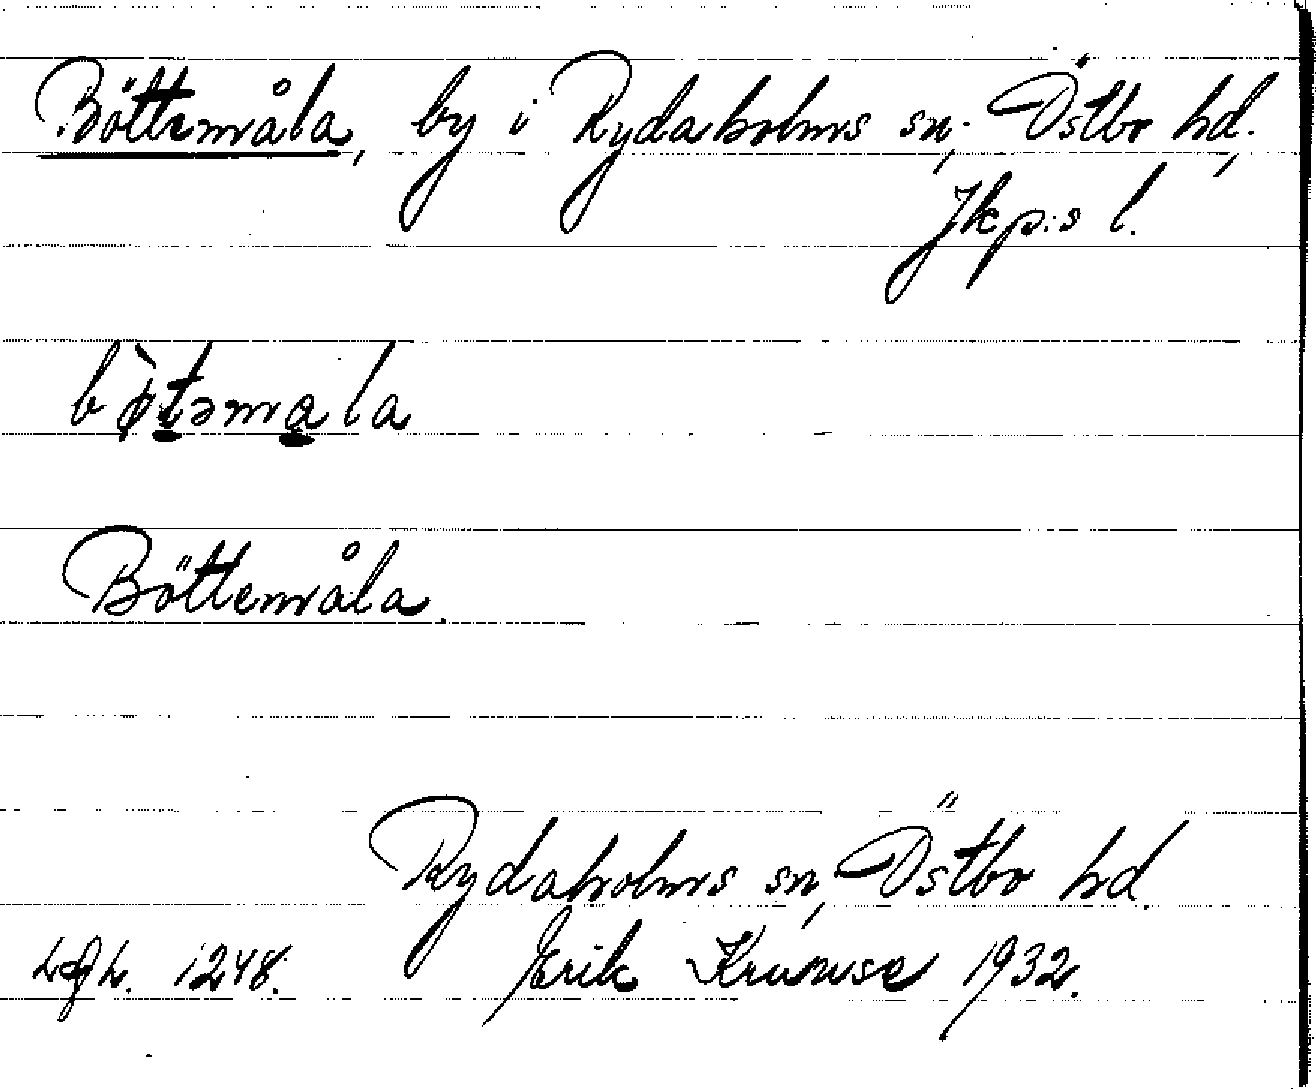 Böttemåla, by i Rydaholms sn, Östbo hd,
Jkp:s l.
bø̀təmala
Böttemåla.
Rydaholms sn, Östbo hd.
1248. Erik 1932.